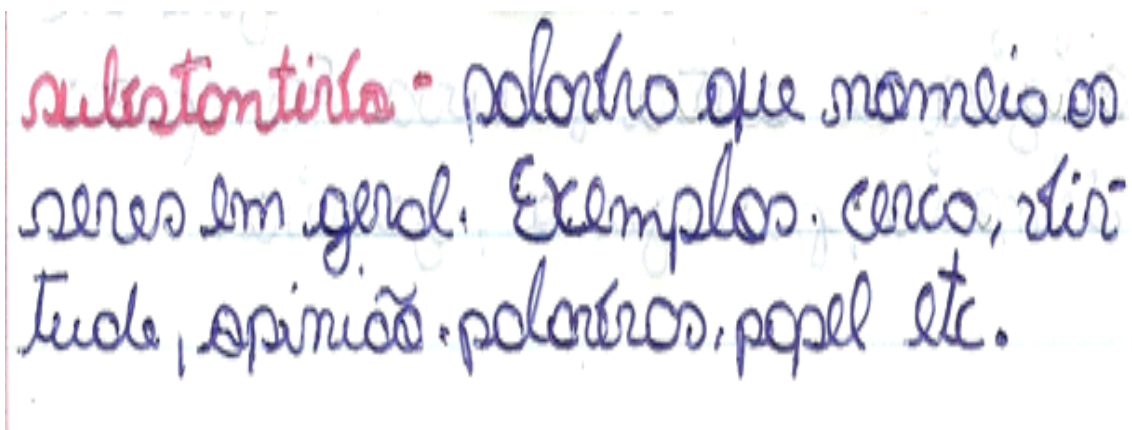 substantivo - palavra que nomeia os
seres em geral. Exemplos. cerca, vir-
tude, opinião. palavras, papel etc.